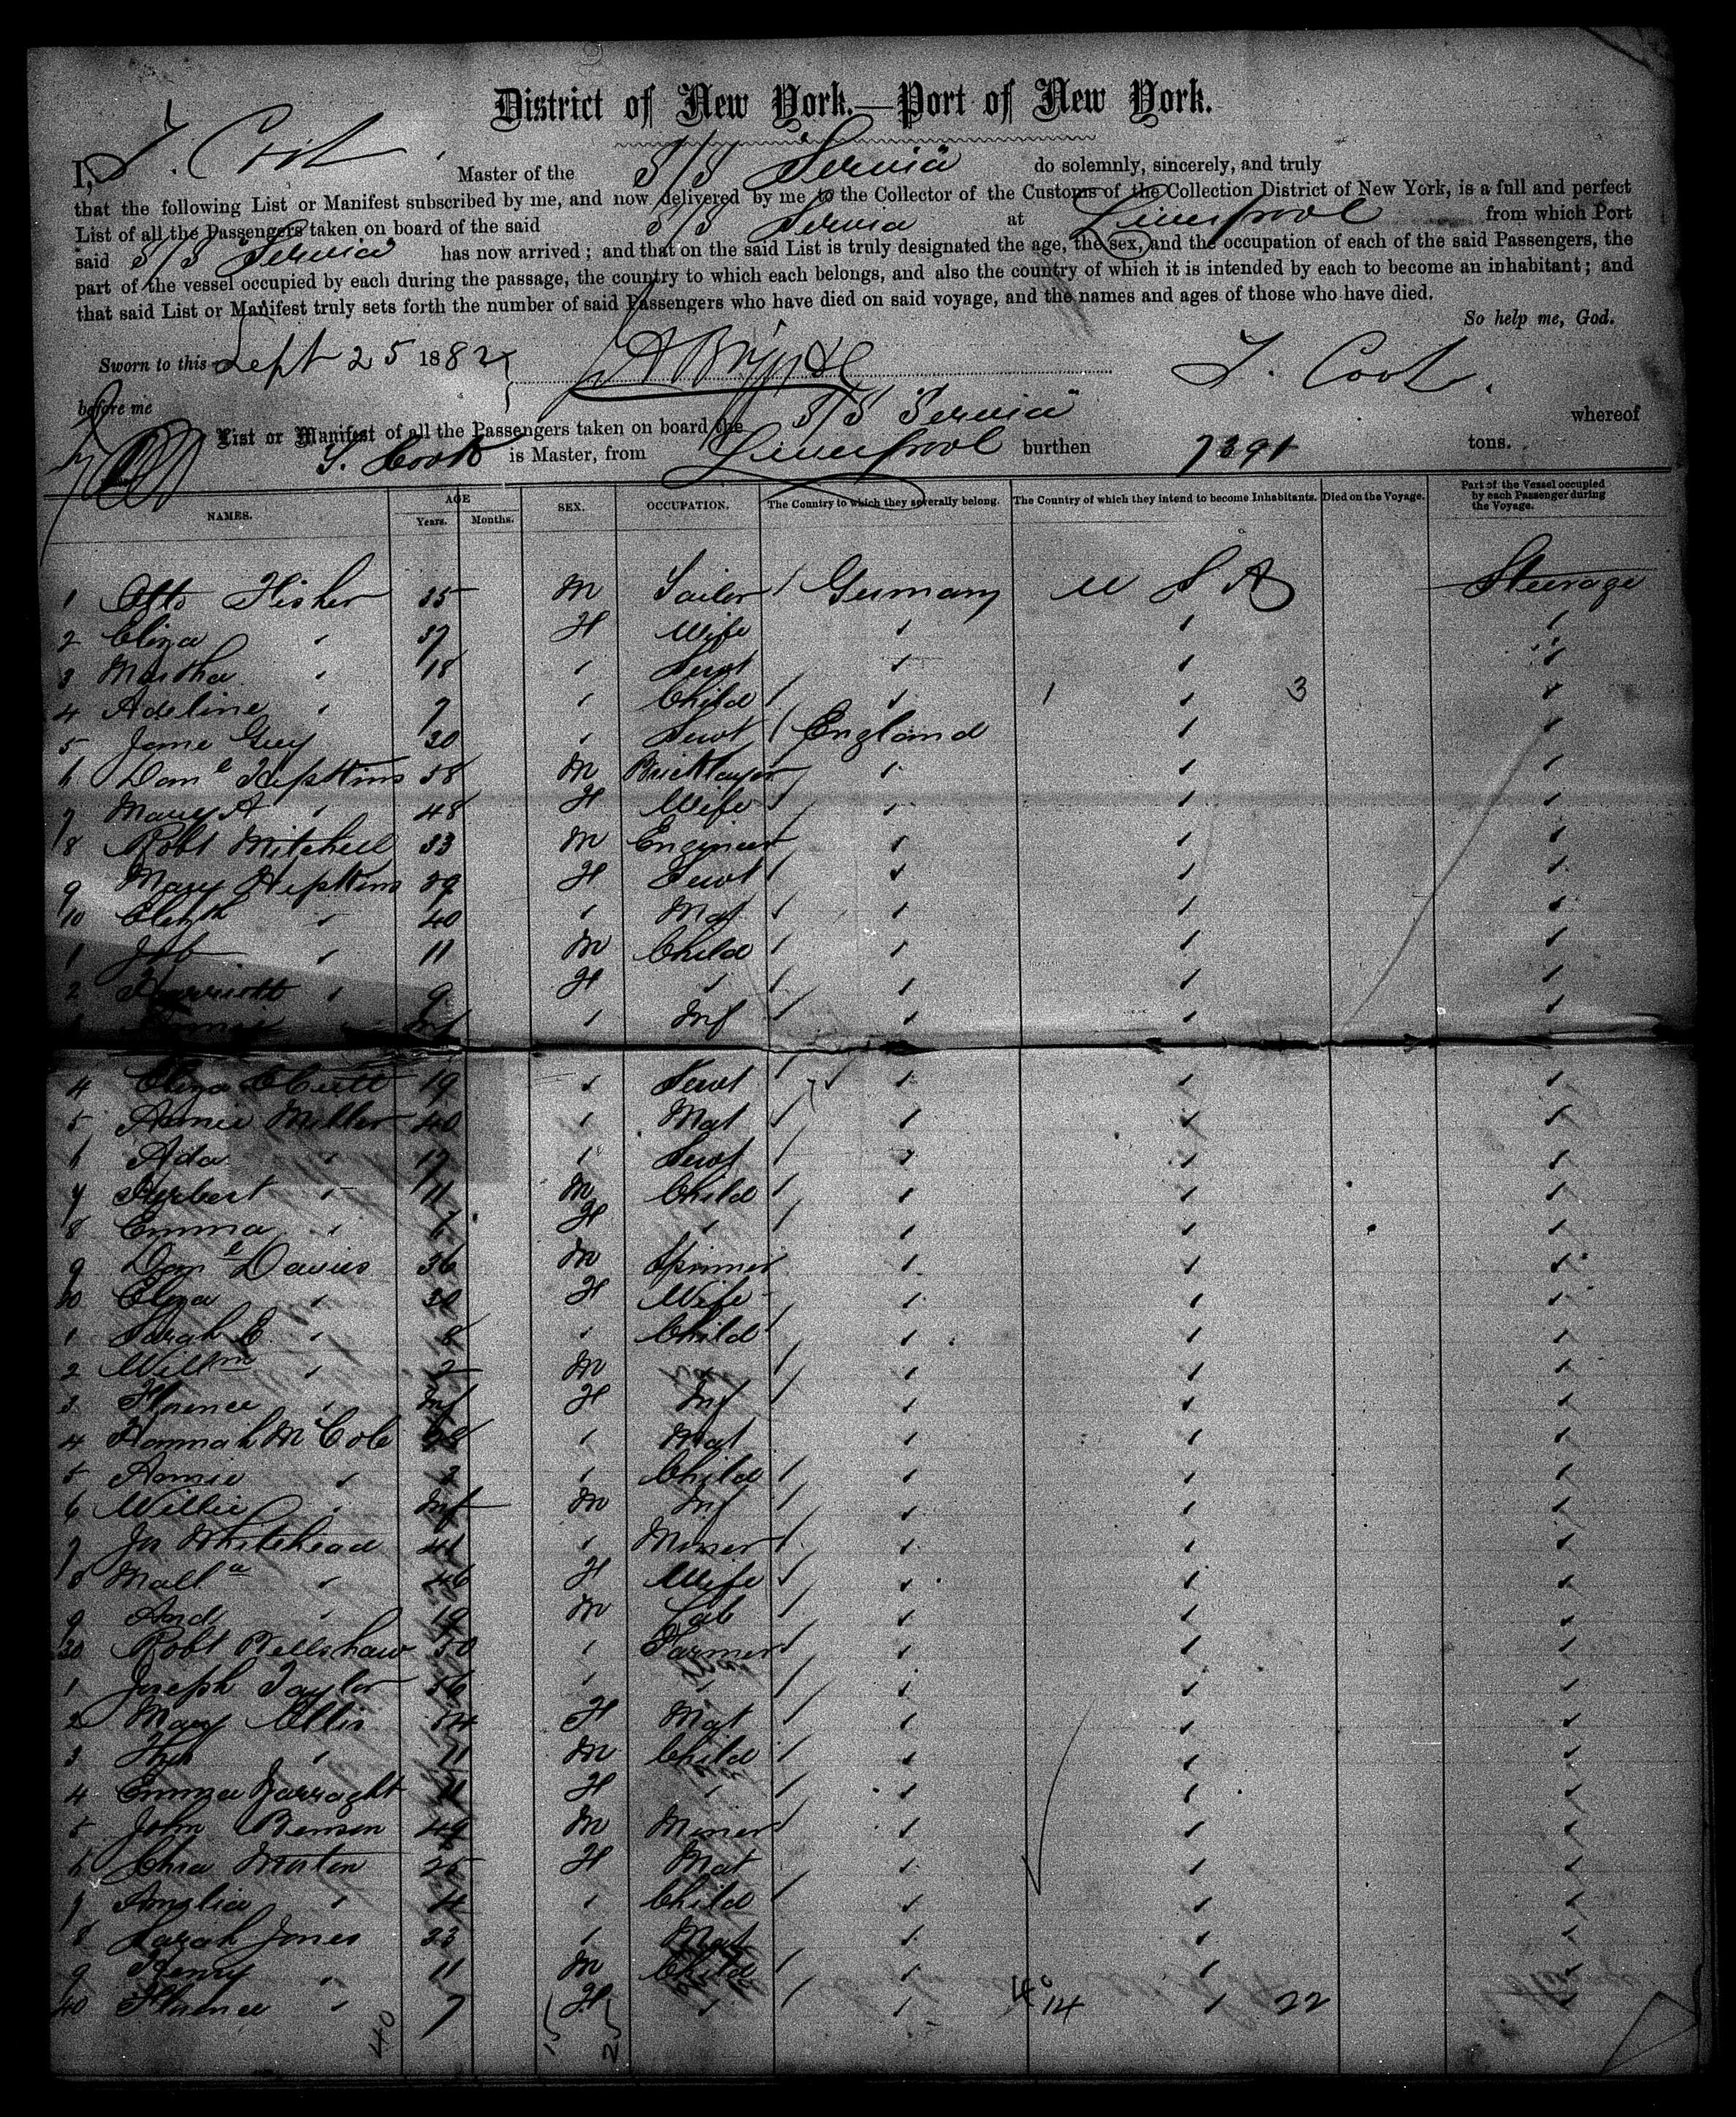 District of New York.—Port of New York.
I, Master of the S/S Servia do solemnly, sincerely, and truly
that the following List or Manifest subscribed by me, and now delivered by me to the Collector of the Customs of the Collection District of New York, is a full and perfect
List of all the Passengers taken on board of the said S/S Servia at Liverpool from which Port
said S/S Servia has now arrived; and that on the said List is truly designated the age, the sex, and the occupation of each of the said Passengers, the
part of the vessel occupied by each during the passage, the country to which each belongs, and also the country of which it is intended by each to become an inhabitant; and
that said List or Manifest truly sets forth the number of said Passengers who have died on said voyage, and the names and ages of those who have died.
So help me, God.
Sworn to this Sept 25 1882
before me
List or Manifest of all the Passengers taken on board the S/S "Servia" whereof
is Master, from Liverpool burthen tons.
NAMES. AGE Years. Months. SEX. OCCUPATION. The Country to which they severally belong. The Country of which they intend to become Inhabitants. Died on the Voyage. Part of the Vessel occupied by each Passenger during the Voyage.
1 Otto Fisher 35 M Sailor Germany U S A Steerage
2 Eliza " 37 F Wife " " "
3 Martha " 18 " Servt " " "
4 Adeline " 7 " Child " 1 " 3 "
5 Jane 30 " Servt England " "
6 Danl 58 M Bricklayer " " "
7 Mary A " 48 F Wife " " "
8 Robt Mitchell 33 M Engineer " " "
9 Mary F Servt " " "
10 Elizth " 40 " Mat " " "
1 Job " 11 M Child " " "
2 Harriott " 9 F " " " "
3 " Inf " Inf " " "
4 Eliza 19 " Servt " " "
5 Annie Miller 40 " Mat " " "
6 Ada " 17 " Servt " " "
7 Herbert " 11 M Child " " "
8 Emma " F " " " "
9 Danl Davies 36 M Spinner " " "
20 Eliza " F Wife " " "
1 Sarah E " 8 " Child " " "
2 Willm " 2 M " " " "
3 Florence " Inf F Inf " " "
4 Hannah M Cole " Mat " " "
5 Annie " " Child " " "
6 Willie " Inf M Inf " " "
7 Jn Whitehead 41 " Miner " " "
8 " 46 F Wife " " "
9 And " 19 M Lab " " "
30 Robt 50 " Farmer " " "
1 Joseph Taylor 56 " " " " "
2 Mary Ellis F Mat " " "
3 Thos " 11 M Child " " "
4 Emma F " " " "
5 John Benson 49 M Miner " " "
6 25 F Mat " " "
7 " " Child " " "
8 Sarah Jones 23 " Mat " " "
9 Henry " 11 M Child " " "
40 Florence " 7 F " " 14 " 22 "
40 15 25